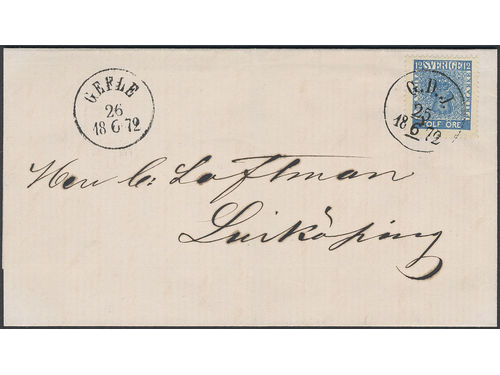 GEFLE
26
18 6 72
12 SVERIGE 12
G. D. J.
25
18 6 72
TOLF ÖRE
Herr C: Loffman
Linköping